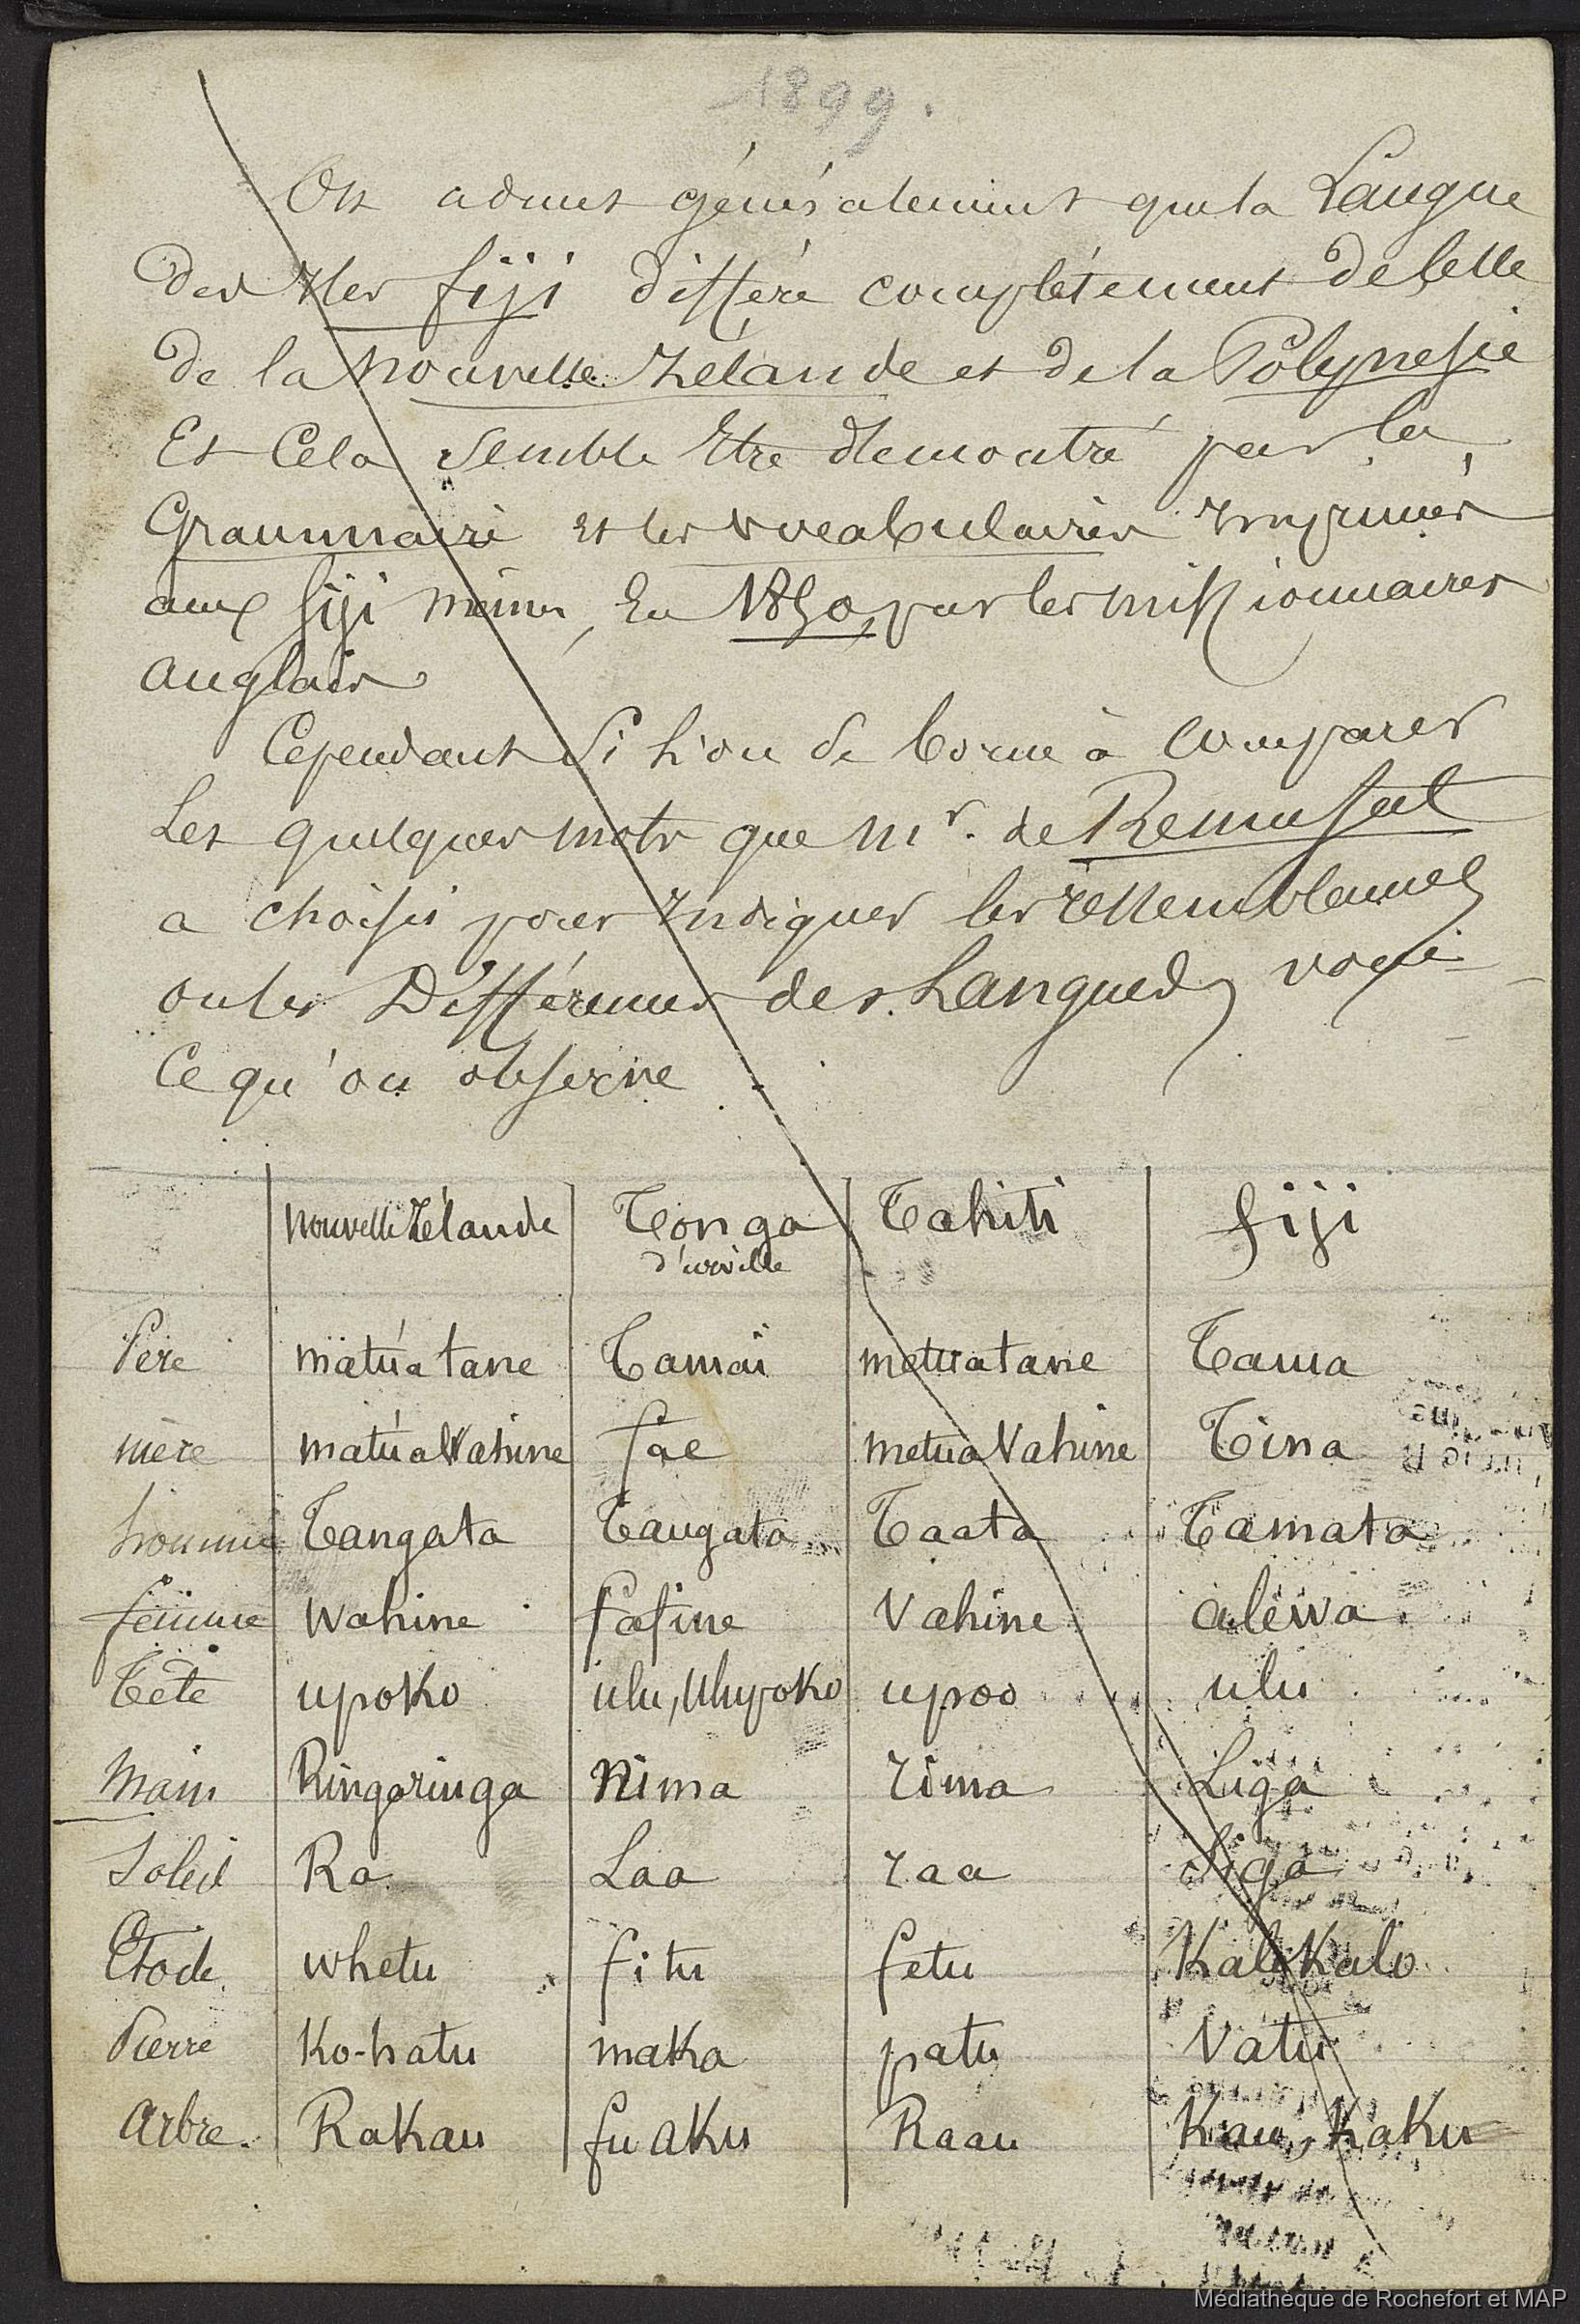 1899.
On admet généralement que la Langue
des Iles fiji différe complétement de Celle
de la Nouvelle Zélande et de la Polynesie
Et Cela semble Etre démontré par la
Grammaire et les vocabulaires Imprimés
aux fiji mêmes, En 1850, par les missionnaires
anglais
Cependant si L'on se borne à Comparer
Les quelques mots que Mr. de Remusat
a choisis pour Indiquer les ressemblances
ou les Différences des Langues, voici
Ce qu'on observe
Nouvelle Zélande Tonga Tahiti fiji
d'urville
Père matúa tane Tamai metua tane Tama
mère matúa Wahine fae metua Vahine Tina
homme Tangata Tangata Taata Tamata
femme Wahine fafine Vahine alewa
Tête upoko ulu, Ulupoko upoo ulu
Main Ringaringa Nima rima Liga
Soleil Ra Laa raa Siga
Etoile whetu fitu fetu Kalokalo
Pierre Ko-hatu maka patu Vatu
Arbre. Rakau fu aku Raau Kau, Kaku
Médiathèque de Rochefort et MAP